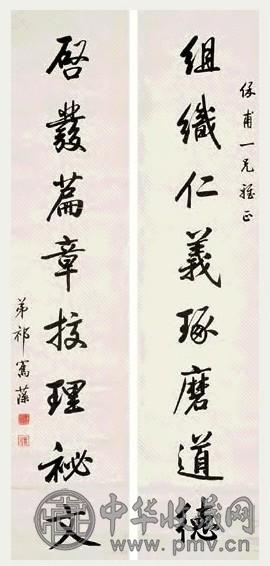 保甫一兄雅正
組織仁義琢磨道德
啟發篇章挍理祕文
弟祁寯藻
中华收藏网
www.pmv.cn